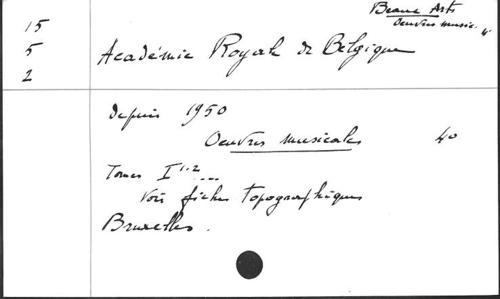 Beaux Arts
15
Oeuvres music. 4°
5
Académie Royale de Belgique
2
depuis 1950
Oeuvres musicales 4°
Tomes I 1.2 ...
Voir fiches topographiques
Bruxelles.